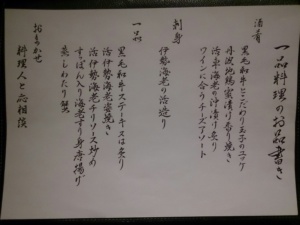 一品料理のお品書き
酒肴
黒毛和牛とこだわり玉子のユッケ
丹波地鶏 蜜漬け香り焼き
活車海老の沖漬け炙り
ワインに合うチーズアソート
刺身
伊勢海老の活造り
一品
黒毛和牛ステーキ又は炙り
活伊勢海老雲丹焼き
活伊勢海老チリソース炒め
すっぽん入り海老すり身唐揚げ
蒸しわたり蟹
おまかせ
料理人と応相談